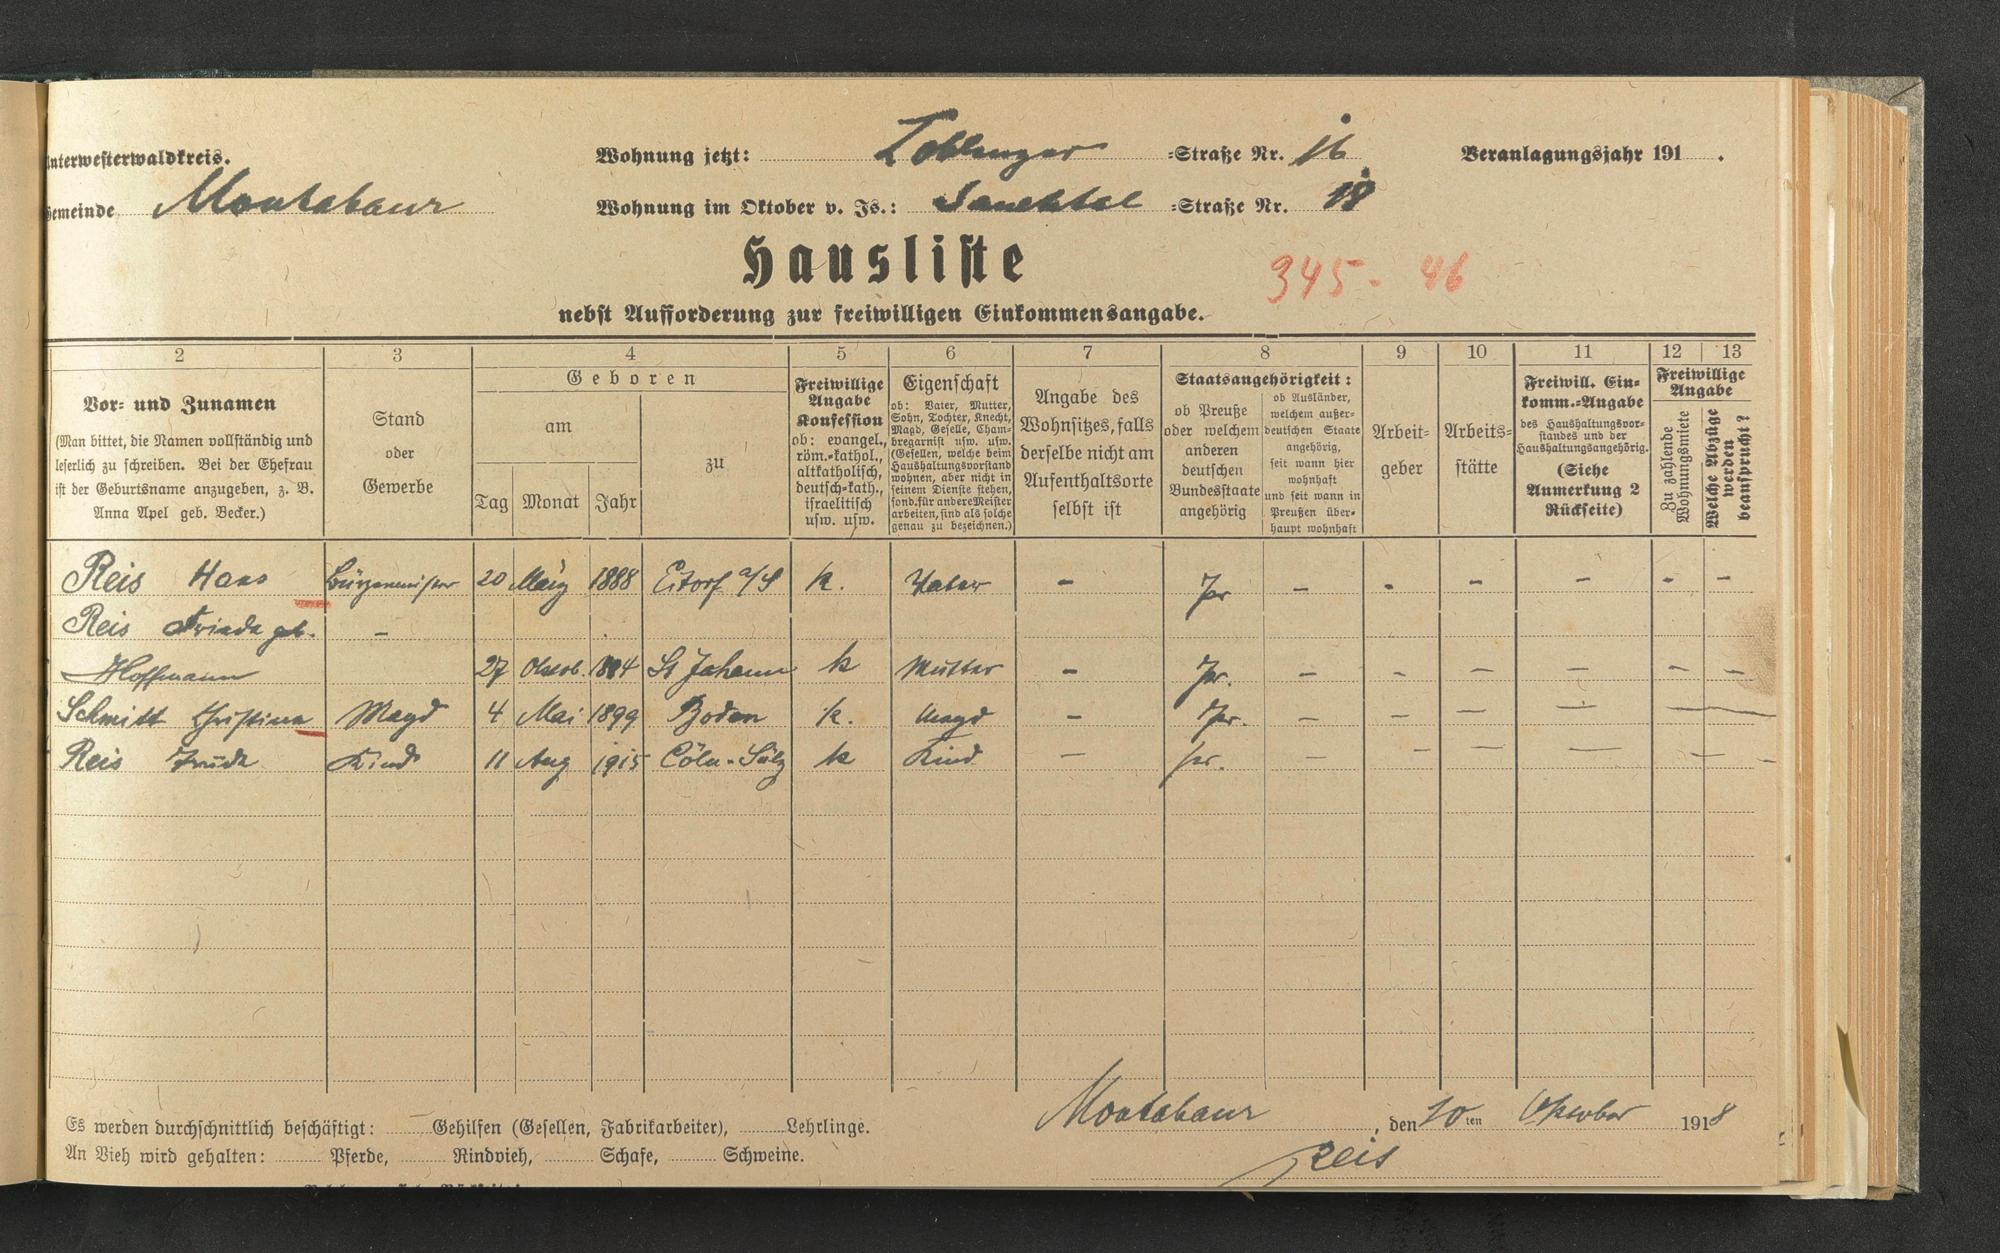 Unterwesterwaldkreis. Wohnung jetzt: Coblenzer =Straße Nr. 16 Veranlagungsjahr 191 .
Gemeinde Montabaur Wohnung im Oktober v. Js.: Sauertal =Straße Nr. 18
Hausliste
345 - 46
nebst Aufforderung zur freiwilligen Einkommensangabe.
2 3 4 5 6 7 8 9 10 11 12 13
Vor- und Zunamen
(Man bittet, die Namen vollständig und
leserlich zu schreiben. Bei der Ehefrau
ist der Geburtsname anzugeben, z. B.
Anna Apel geb. Becker.)
Stand
oder
Gewerbe
Geboren
am
Tag Monat Jahr
zu
Freiwillige
Angabe
Konfession
ob: evangel.,
röm.-kathol.,
altkatholisch,
deutsch-kath.,
israelitisch
usw. usw.
Eigenschaft
ob: Vater, Mutter,
Sohn, Tochter, Knecht,
Magd, Geselle, Cham-
bregarnist usw. usw.
(Gesellen, welche beim
Haushaltungsvorstand
wohnen, aber nicht in
seinem Dienste stehen,
sond. für andere Meister
arbeiten, sind als solche
genau zu bezeichnen.)
Angabe des
Wohnsitzes, falls
derselbe nicht am
Aufenthaltsorte
selbst ist
Staatsangehörigkeit:
ob Preuße
oder welchem
anderen
deutschen
Bundesstaate
angehörig
ob Ausländer,
welchem außer-
deutschen Staate
angehörig,
seit wann hier
wohnhaft
und seit wann in
Preußen über-
haupt wohnhaft
Arbeit-
geber
Arbeits-
stätte
Freiwill. Ein-
komm.-Angabe
des Haushaltungsvor-
standes und der
Haushaltungsangehörig.
(Siehe
Anmerkung 2
Rückseite)
Freiwillige
Angabe
Zu zahlende
Wohnungsmiete
Welche Abzüge
werden
beansprucht?
Reis Hans Bürgermeister 20 März 1888 Eitorf a/S k. Vater - Pr - - - - - -
Reis Frieda geb. -
Hoffmann 27 Oktob. 1894 St Johann k Mutter - Pr. - - - - - -
Schmitt Christina Magd 4 Mai 1899 Boden k. Magd - Pr. - - - - -
Reis Trude Kind 11 Aug 1915 Cöln-Sülz k Kind - pr. - - - - - -
Es werden durchschnittlich beschäftigt: Gehilfen (Gesellen, Fabrikarbeiter), Lehrlinge.
Montabaur, den 20ten Oktober 1918
An Vieh wird gehalten: Pferde, Rindvieh, Schafe, Schweine.
Reis